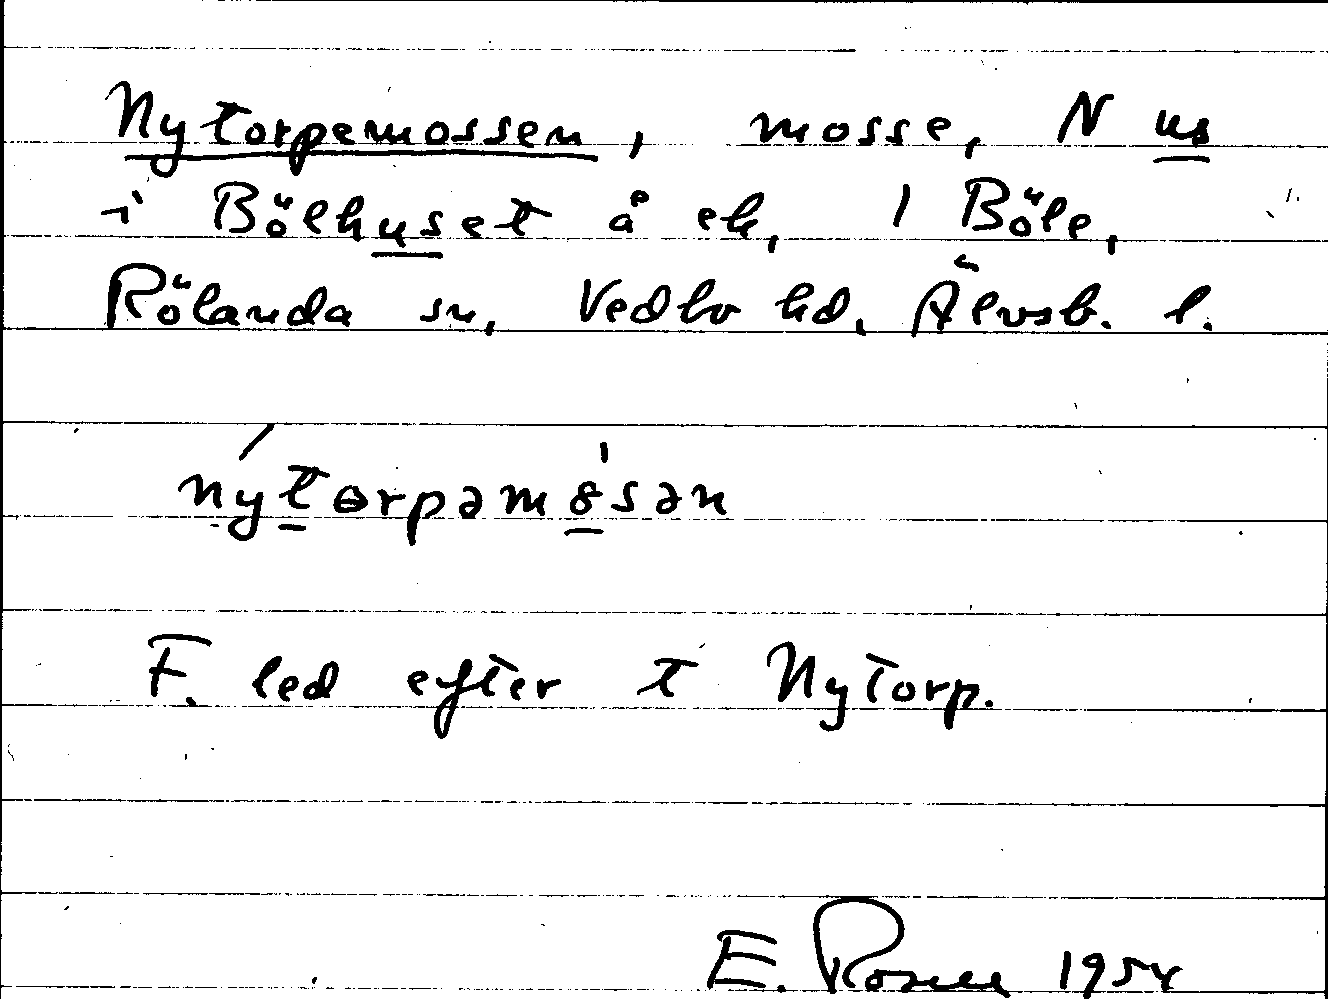 Nytorpemossen, mosse, N us
i Bölhuset å ek, 1 Böle,
Rölanda sn, Vedbo hd, Älvsb. l.
nýtɵrpəmo̱̍sən
F. led efter t Nytorp.
E. Rosell 1954